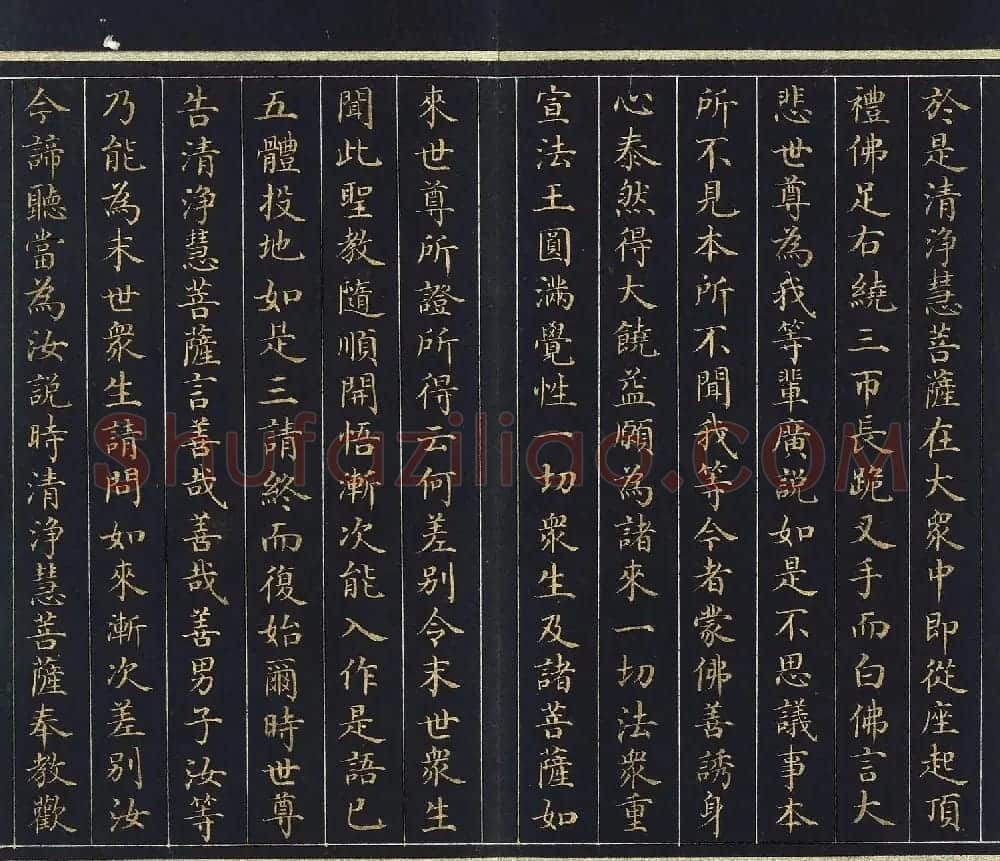 於是清淨慧菩薩在大衆中即從座起頂
禮佛足右繞三帀長跪叉手而白佛言大
悲世尊為我等輩廣說如是不思議事本
所不見本所不聞我等今者蒙佛善誘身
心泰然得大饒益願為諸來一切法衆重
宣法王圓滿覺性一切衆生及諸菩薩如
來世尊所證所得云何差别令末世衆生
聞此聖教隨順開悟漸次能入作是語已
五體投地如是三請終而復始爾時世尊
告清淨慧菩薩言善哉善哉善男子汝等
乃能為末世衆生請問如來漸次差别汝
今諦聽當為汝說時清淨慧菩薩奉教歡
Shufaziliao.COM